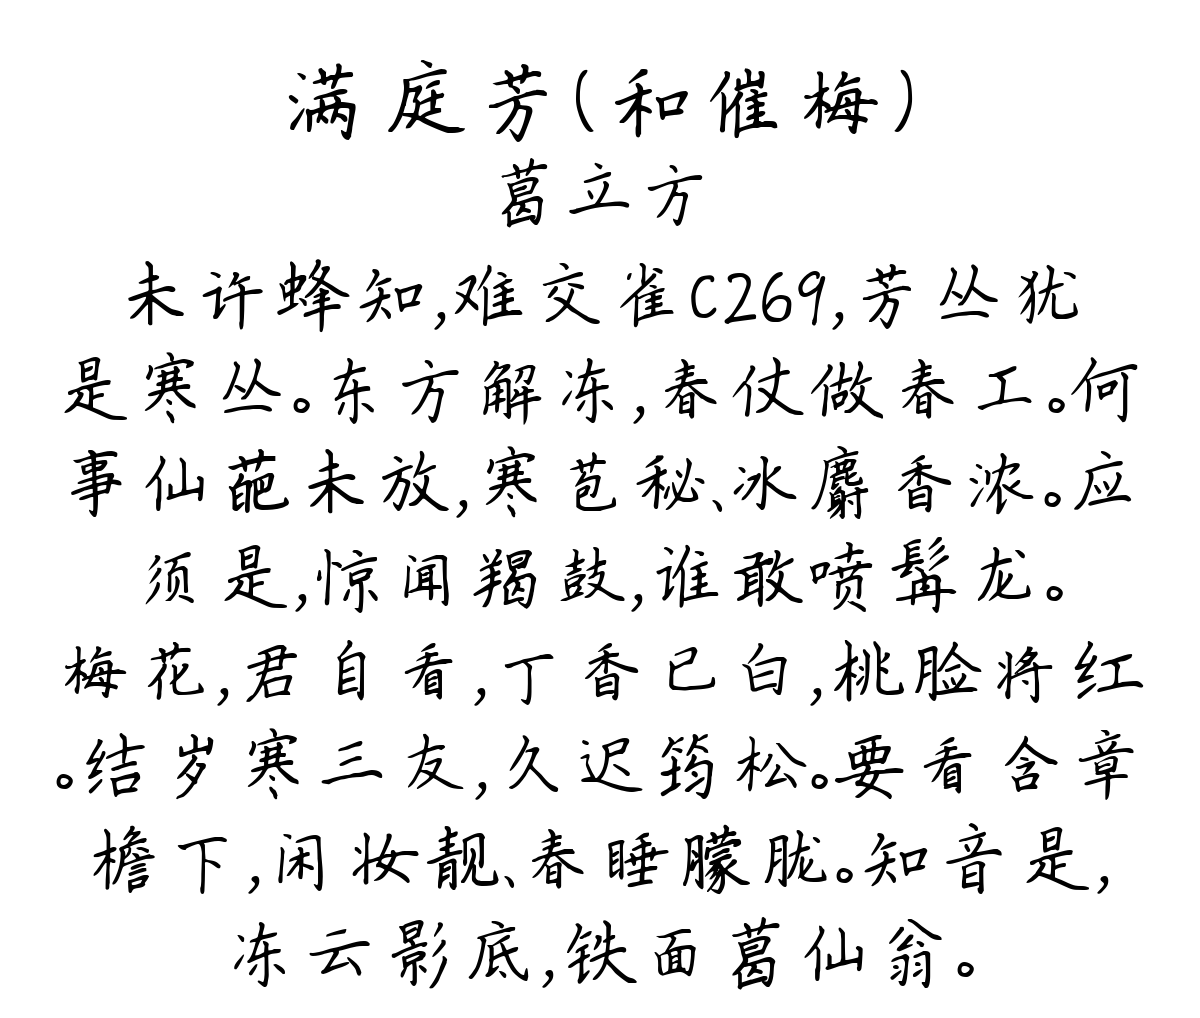 满庭芳(和催梅)
葛立方
未许蜂知,难交雀C269,芳丛犹
是寒丛。东方解冻,春仗做春工。何
事仙葩未放,寒苞秘、冰麝香浓。应
须是,惊闻羯鼓,谁敢喷髯龙。
梅花,君自看,丁香已白,桃脸将红
。结岁寒三友,久迟筠松。要看含章
檐下,闲妆靓、春睡朦胧。知音是,
冻云影底,铁面葛仙翁。